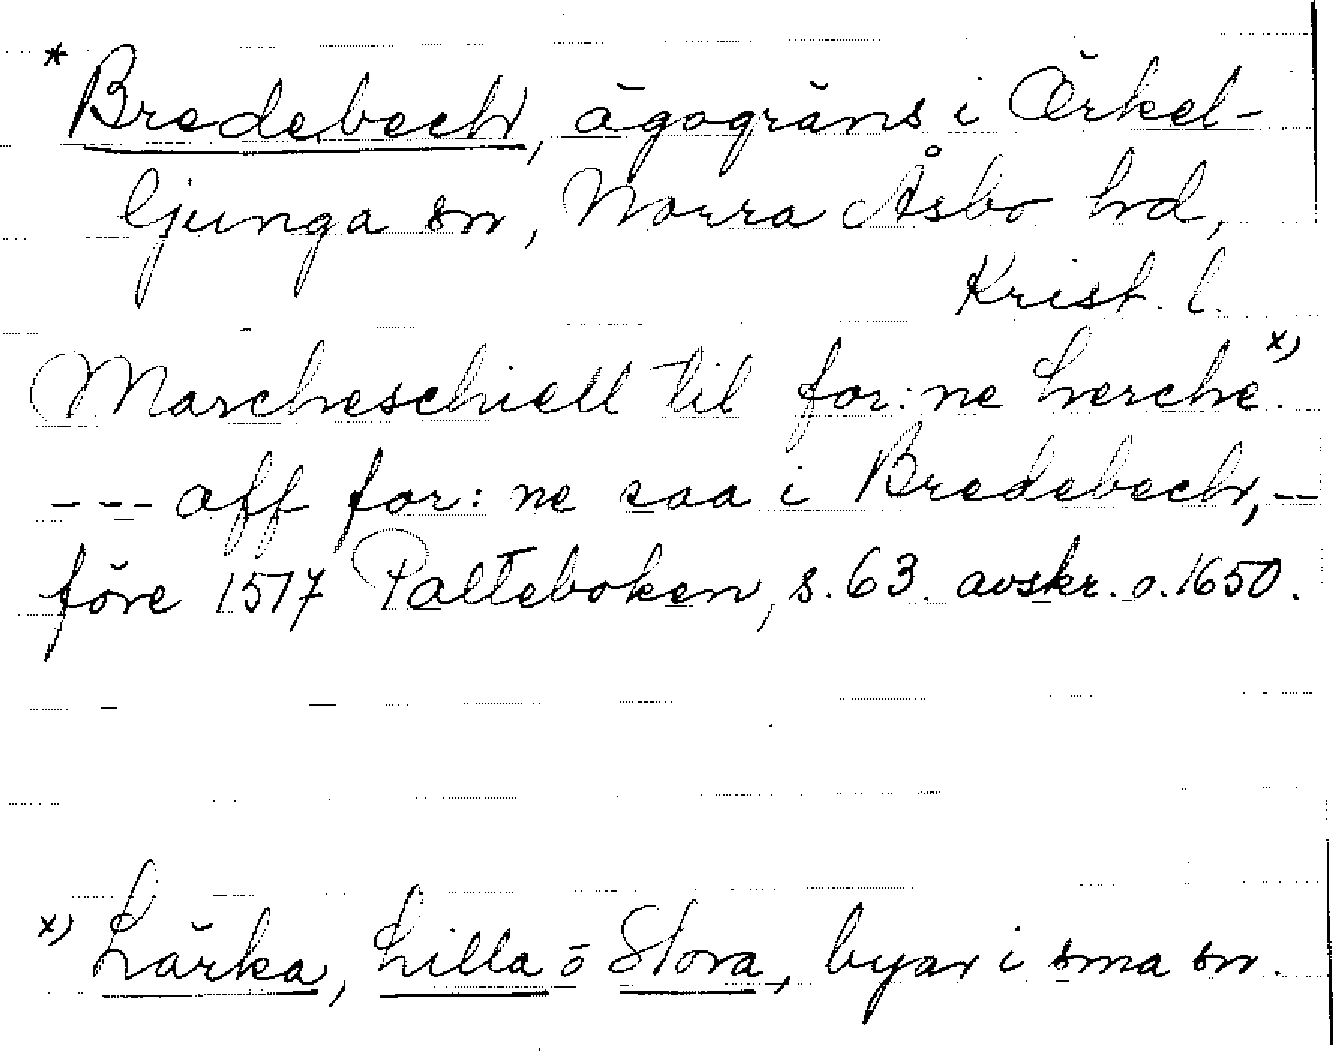 * Bredebech, ägogräns i Örkel-
ljunga sn, Norra Åsbo hd,
Krist. l.
Marcheschiell til for:ne Lerche x)
--- aff for:ne saa i Bredebech, --
före 1517 Palteboken, s. 63. avskr. o. 1650.
x) Lärka, Lilla o Stora, byar i sma sn.